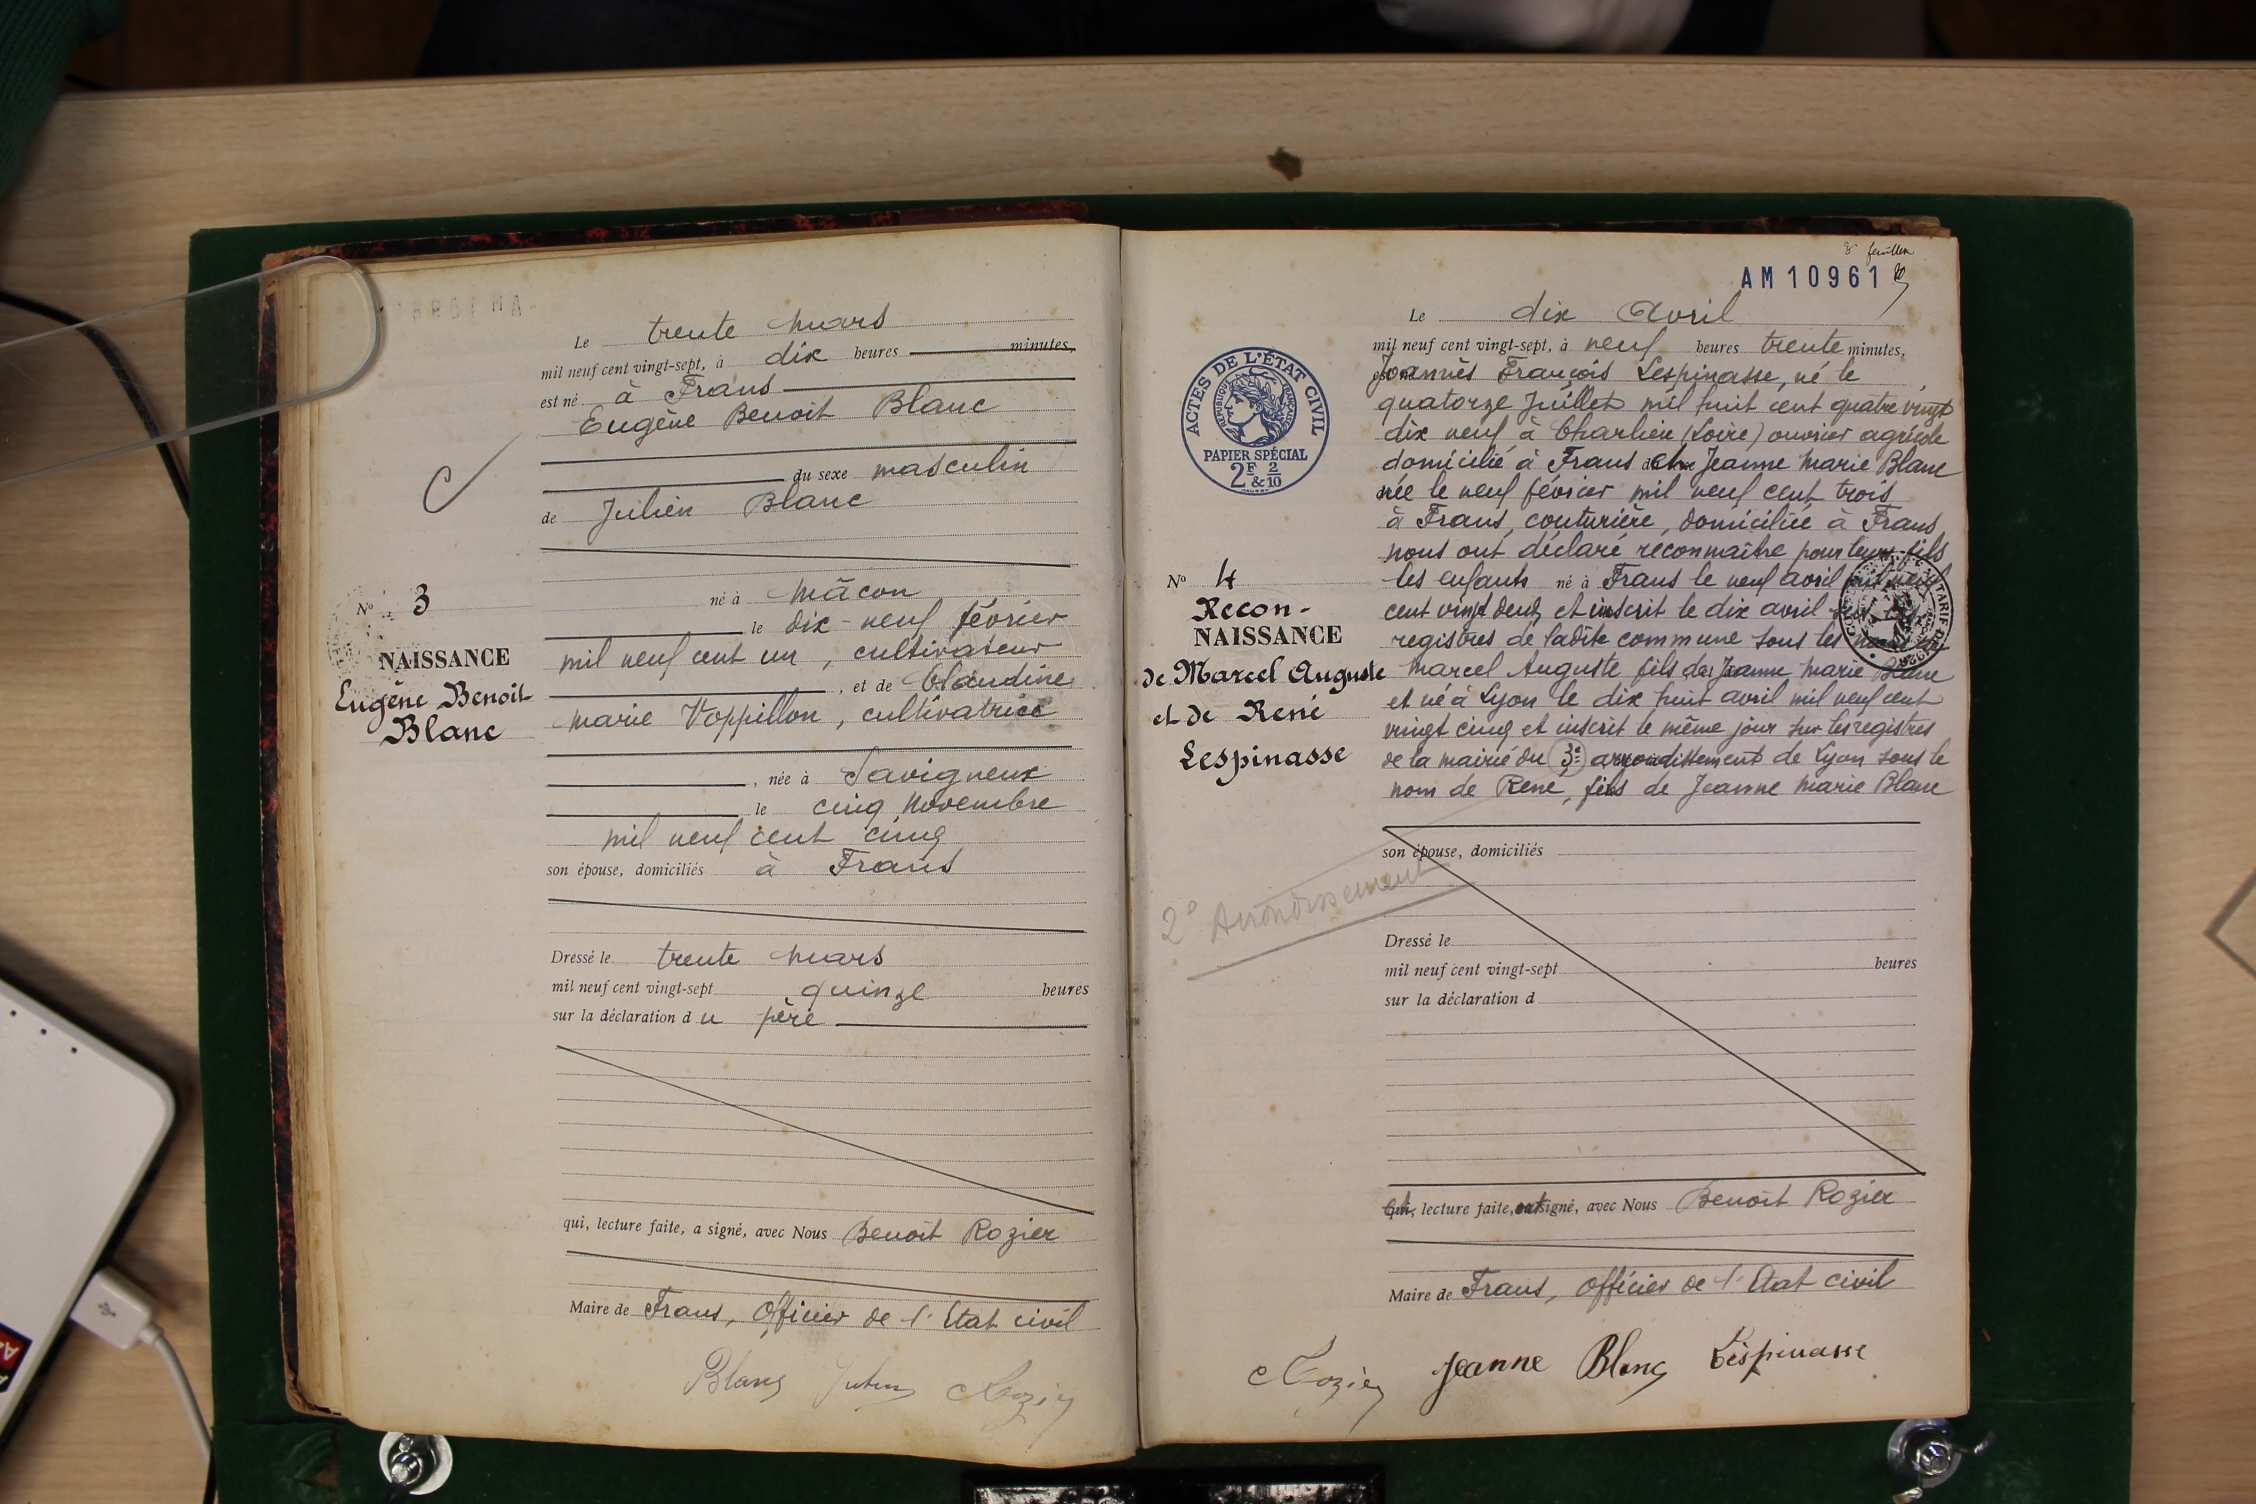 Le trente Mars
mil neuf cent vingt-sept, à dix heures minutes,
est né à Frans
Eugène Benoit Blanc
du sexe masculin
de Julien Blanc
N° 3
NAISSANCE
Eugène Benoit
Blanc
né à Mâcon
le dix-neuf février
mil neuf cent un, cultivateur
, et de Claudine
Marie Voppillon, cultivatrice
, née à Savigneux
le cinq Novembre
mil neuf cent cinq
son épouse, domiciliés à Frans
Dressé le trente Mars
mil neuf cent vingt-sept quinze heures
sur la déclaration du père
qui, lecture faite, a signé, avec Nous Benoît Rozier
Maire de Frans, Officier de l'Etat civil
Blanc Julien Rozier
feuillet
AM 10961
ACTES DE L'ÉTAT CIVIL
RÉPUBLIQUE FRANÇAISE
PAPIER SPÉCIAL
2F & 2/10
N° 4
Recon-
NAISSANCE
de Marcel Auguste
et de René
Lespinasse
2e Arrondissement
Le dix Avril
mil neuf cent vingt-sept, à neuf heures trente minutes,
Joannès François Lespinasse, né le
quatorze Juillet mil huit cent quatre vingt
dix neuf à Charlieu (Loire) ouvrier agricole
domicilié à Frans et Jeanne Marie Blanc
née le neuf février mil neuf cent trois
à Frans, couturière, domiciliée à Frans
nous ont déclaré reconnaître pour leurs fils
les enfants né à Frans le neuf avril mil neuf
cent vingt deux et inscrit le dix avril sur les
registres de ladite commune sous les noms de
Marcel Auguste fils de Jeanne Marie Blanc
et né à Lyon le dix huit avril mil neuf cent
vingt cinq et inscrit le même jour sur les registres
de la mairie du 3e arrondissement de Lyon sous le
nom de René, fils de Jeanne Marie Blanc
son épouse, domiciliés
Dressé le
mil neuf cent vingt-sept heures
sur la déclaration d
Et, lecture faite, ont signé, avec Nous Benoît Rozier
Maire de Frans, Officier de l'Etat civil
Rozier Jeanne Blanc Lespinasse